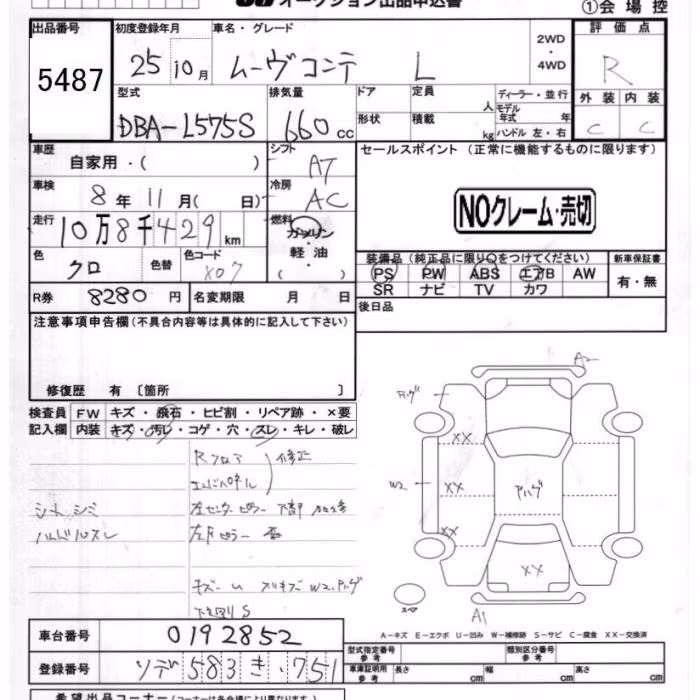 オークション出品申込書
①会場控
出品番号 初度登録年月 車名・グレード 評価点
5487 25 10月 ムーヴコンテ L 2WD・4WD R
型式 排気量 ドア 定員 人 ディーラー・並行 外装 内装
DBA-L575S 660cc 形状 積載 kg モデル年式 年 ハンドル 左・右 C C
車歴 自家用・( ) シフト AT セールスポイント (正常に機能するものに限ります)
車検 8年 11月( 日) 冷房 AC
NOクレーム・売切
走行 10万8千429km 燃料 ガソリン・軽油 ( )
色 クロ 色替 色コード X07
装備品 (純正品に限り○をつけてください) 新車保証書
PS PW ABS エアB AW 有・無
SR ナビ TV カワ
R券 8280円 名変期限 月 日 後日品
注意事項申告欄(不具合内容等は具体的に記入して下さい)
修復歴 有 〔箇所 〕
検査員 FW キズ・飛石・ヒビ割・リペア跡・×要
記入欄 内装 キズ・汚レ・コゲ・穴・スレ・キレ・破レ
Rフロア
エンドパネル
修正
シートシミ 左センターピラー 下部
ハンドルスレ
キズ
W2
下廻りS
A2
アハゲ
XX
W2
XX
アハゲ
XX
XX
スペア
A1
A-キズ E-エクボ U-凹み W-補修跡 S-サビ C-腐食 XX-交換済
車台番号 0192852
型式指定番号 参考 類別区分番号 参考
登録番号 ソデ 583 き・751
車庫証明用 参考 長さ cm 幅 cm 高さ cm
希望出品コーナー